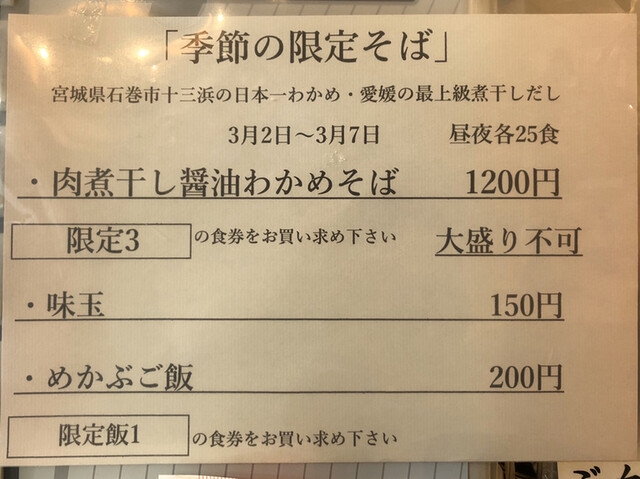 「季節の限定そば」
宮城県石巻市十三浜の日本一わかめ・愛媛の最上級煮干しだし
3月2日～3月7日 昼夜各25食
・肉煮干し醤油わかめそば 1200円
限定3 の食券をお買い求め下さい 大盛り不可
・味玉 150円
・めかぶご飯 200円
限定飯1 の食券をお買い求め下さい